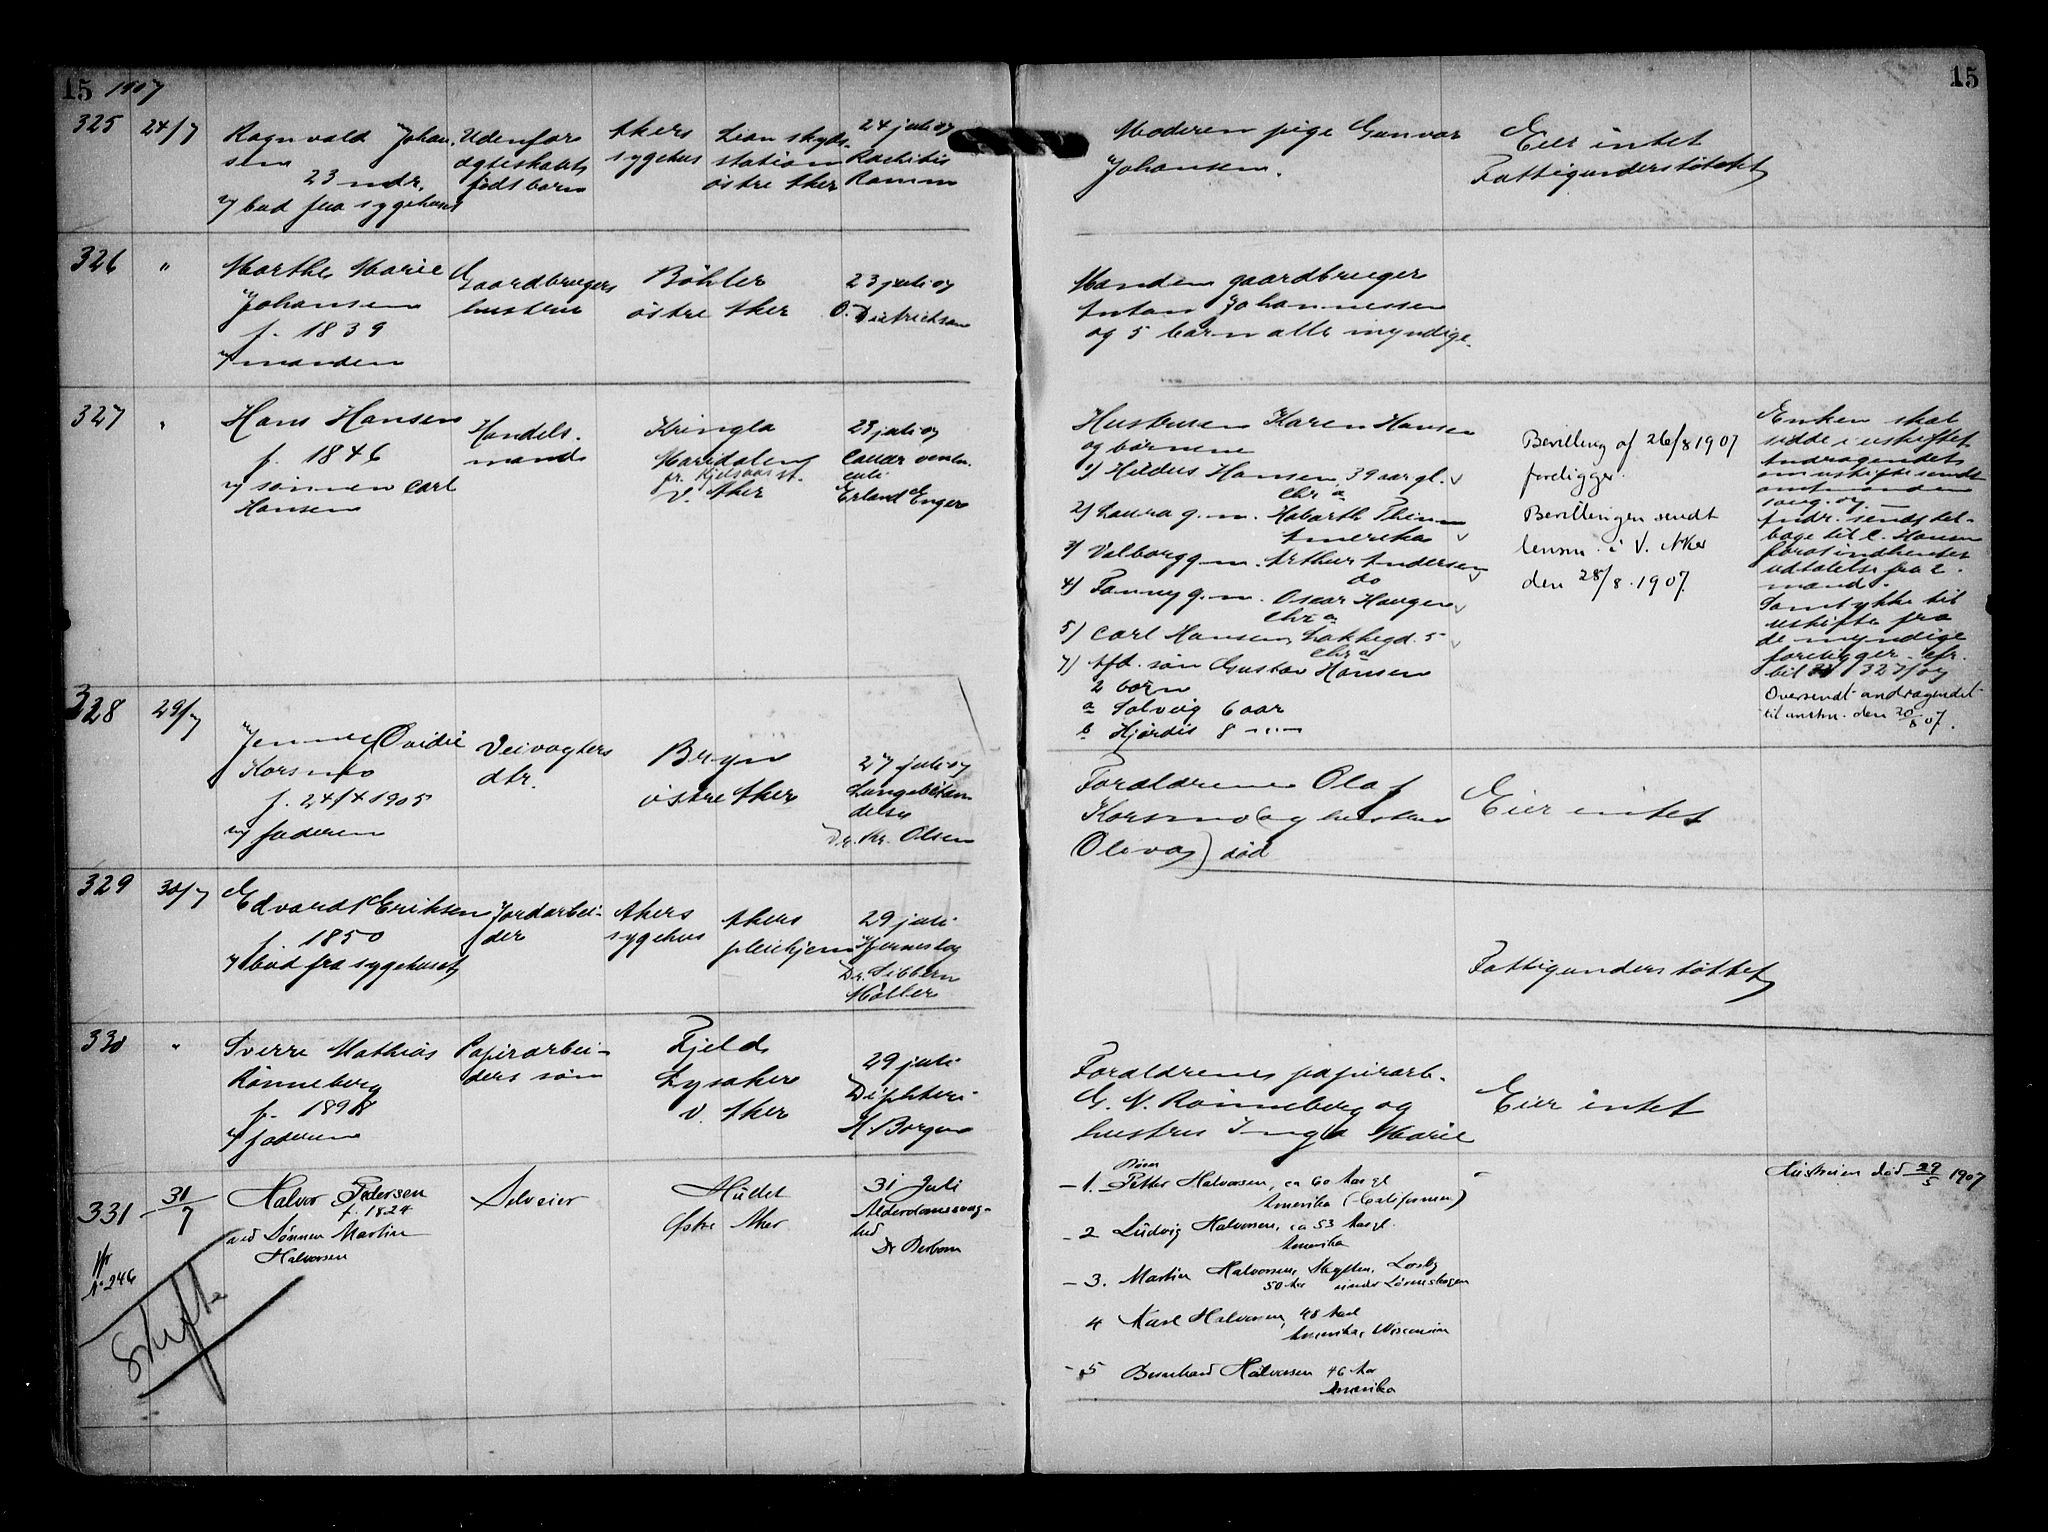 15 1907
15
325 24/7
Ragnvald Johan-
sen
23 mdr.
v/ bud fra sygehuset
Udenfor
ægteskabet
født barn
Akers
sygehus
Lian skyds-
station
østre Aker
24 juli 07
Rachitis
Ramm
Moderen pige Gunvor
Johansen.
Eier intet
Fattigunderstøttet
326 "
Marthe Marie
Johansen
f. 1839
v/ manden
Gaardbrugers
hustru
Bøhler
østre Aker
23 juli 07
O. Dietrichson
Manden gaardbruger
Anton Johannessen
og 5 barn alle myndige.
327 "
Hans Hansen
f. 1846
v/ sønnen Carl
Hansen
Handels-
mand
Kringla
Maridalen
pr. Kjelsaas st.
V. Aker
23 juli 07
Erland Enger
Hustruen Karen Hansen
og børnene
1) Hildus Hansen 39 aar gl.
Chr a
2) Laura g. m. Hobarth Thinn
Amerika
3) Valborg g. m. Arthur Andersen
do
4) Fanny g. m. Oscar Haugen
Chr a
5) Carl Hansen, Lakkegd. 5
Chr a
7) Afd. søn Gustav Hansen
2 børn
a Solveig 6 aar
b Hjørdis 8 "
Bevilling af 26/8 1907
foreligger.
Bevillingen sendt
lensm. i V. Aker
den 28/8. 1907.
Enken skal
sidde i uskiftet.
Andragendet
om uskifte sendt
amtmanden
Andr. sendt til-
bage til C. Hansen
for at indhente
udtalelse fra 2
mænd.
Samtykke til
uskifte fra
de myndige
foreligger. cfr.
bil 327/07
Oversendt andragendet
til amtm. den 20/8 07.
328 29/7
Jenny Ovidie
Korsmo
f. 24/4 1905
v/ faderen
Veivogters
dtr.
Bryn
østre Aker
27 juli 07
Lungebetæn-
delse
Dr. Kr. Olsen
Forældrene Olaf
Korsmo (og hustru
Oliva) død
Eier intet
329 30/7
Edvard Eriksen
f. 1850
v/ bud fra sygehuset
Jordarbei-
der
Akers
sygehus
Akers
pleiehjem
29 juli
Hjerneslag
Dr. Sibbern
Møller
Fattigunderstøttet
330 "
Sverre Mathias
Rønneberg
f. 1898
v/ faderen
Papirarbei-
ders søn
Fjeld
Lysaker
V. Aker
29 juli
Diphteri
H. Borgen
Forældrene papirarb.
G. N. Rønneberg og
hustru Inga Marie
Eier intet
331 31/7
Halvor Pedersen
f. 1824
ved Sønnen Martin
Halvorsen
Selveier
Østre Aker
31 Juli
Alderdomssvag-
hed
Dr
Børn
1. Petter Halvorsen, ca 60 Aar gl
Amerika (Californien)
2 Ludvig Halvorsen, ca 53 Aar gl.
Amerika
3. Martin Halvorsen, Losby
50 Aar
4 Karl Halvorsen, 48 Aar
Amerika, Wisconsin
5 Bernhard Halvorsen 46 Aar
Amerika
Hustruen død 29/5 1907
No 246
Skifte